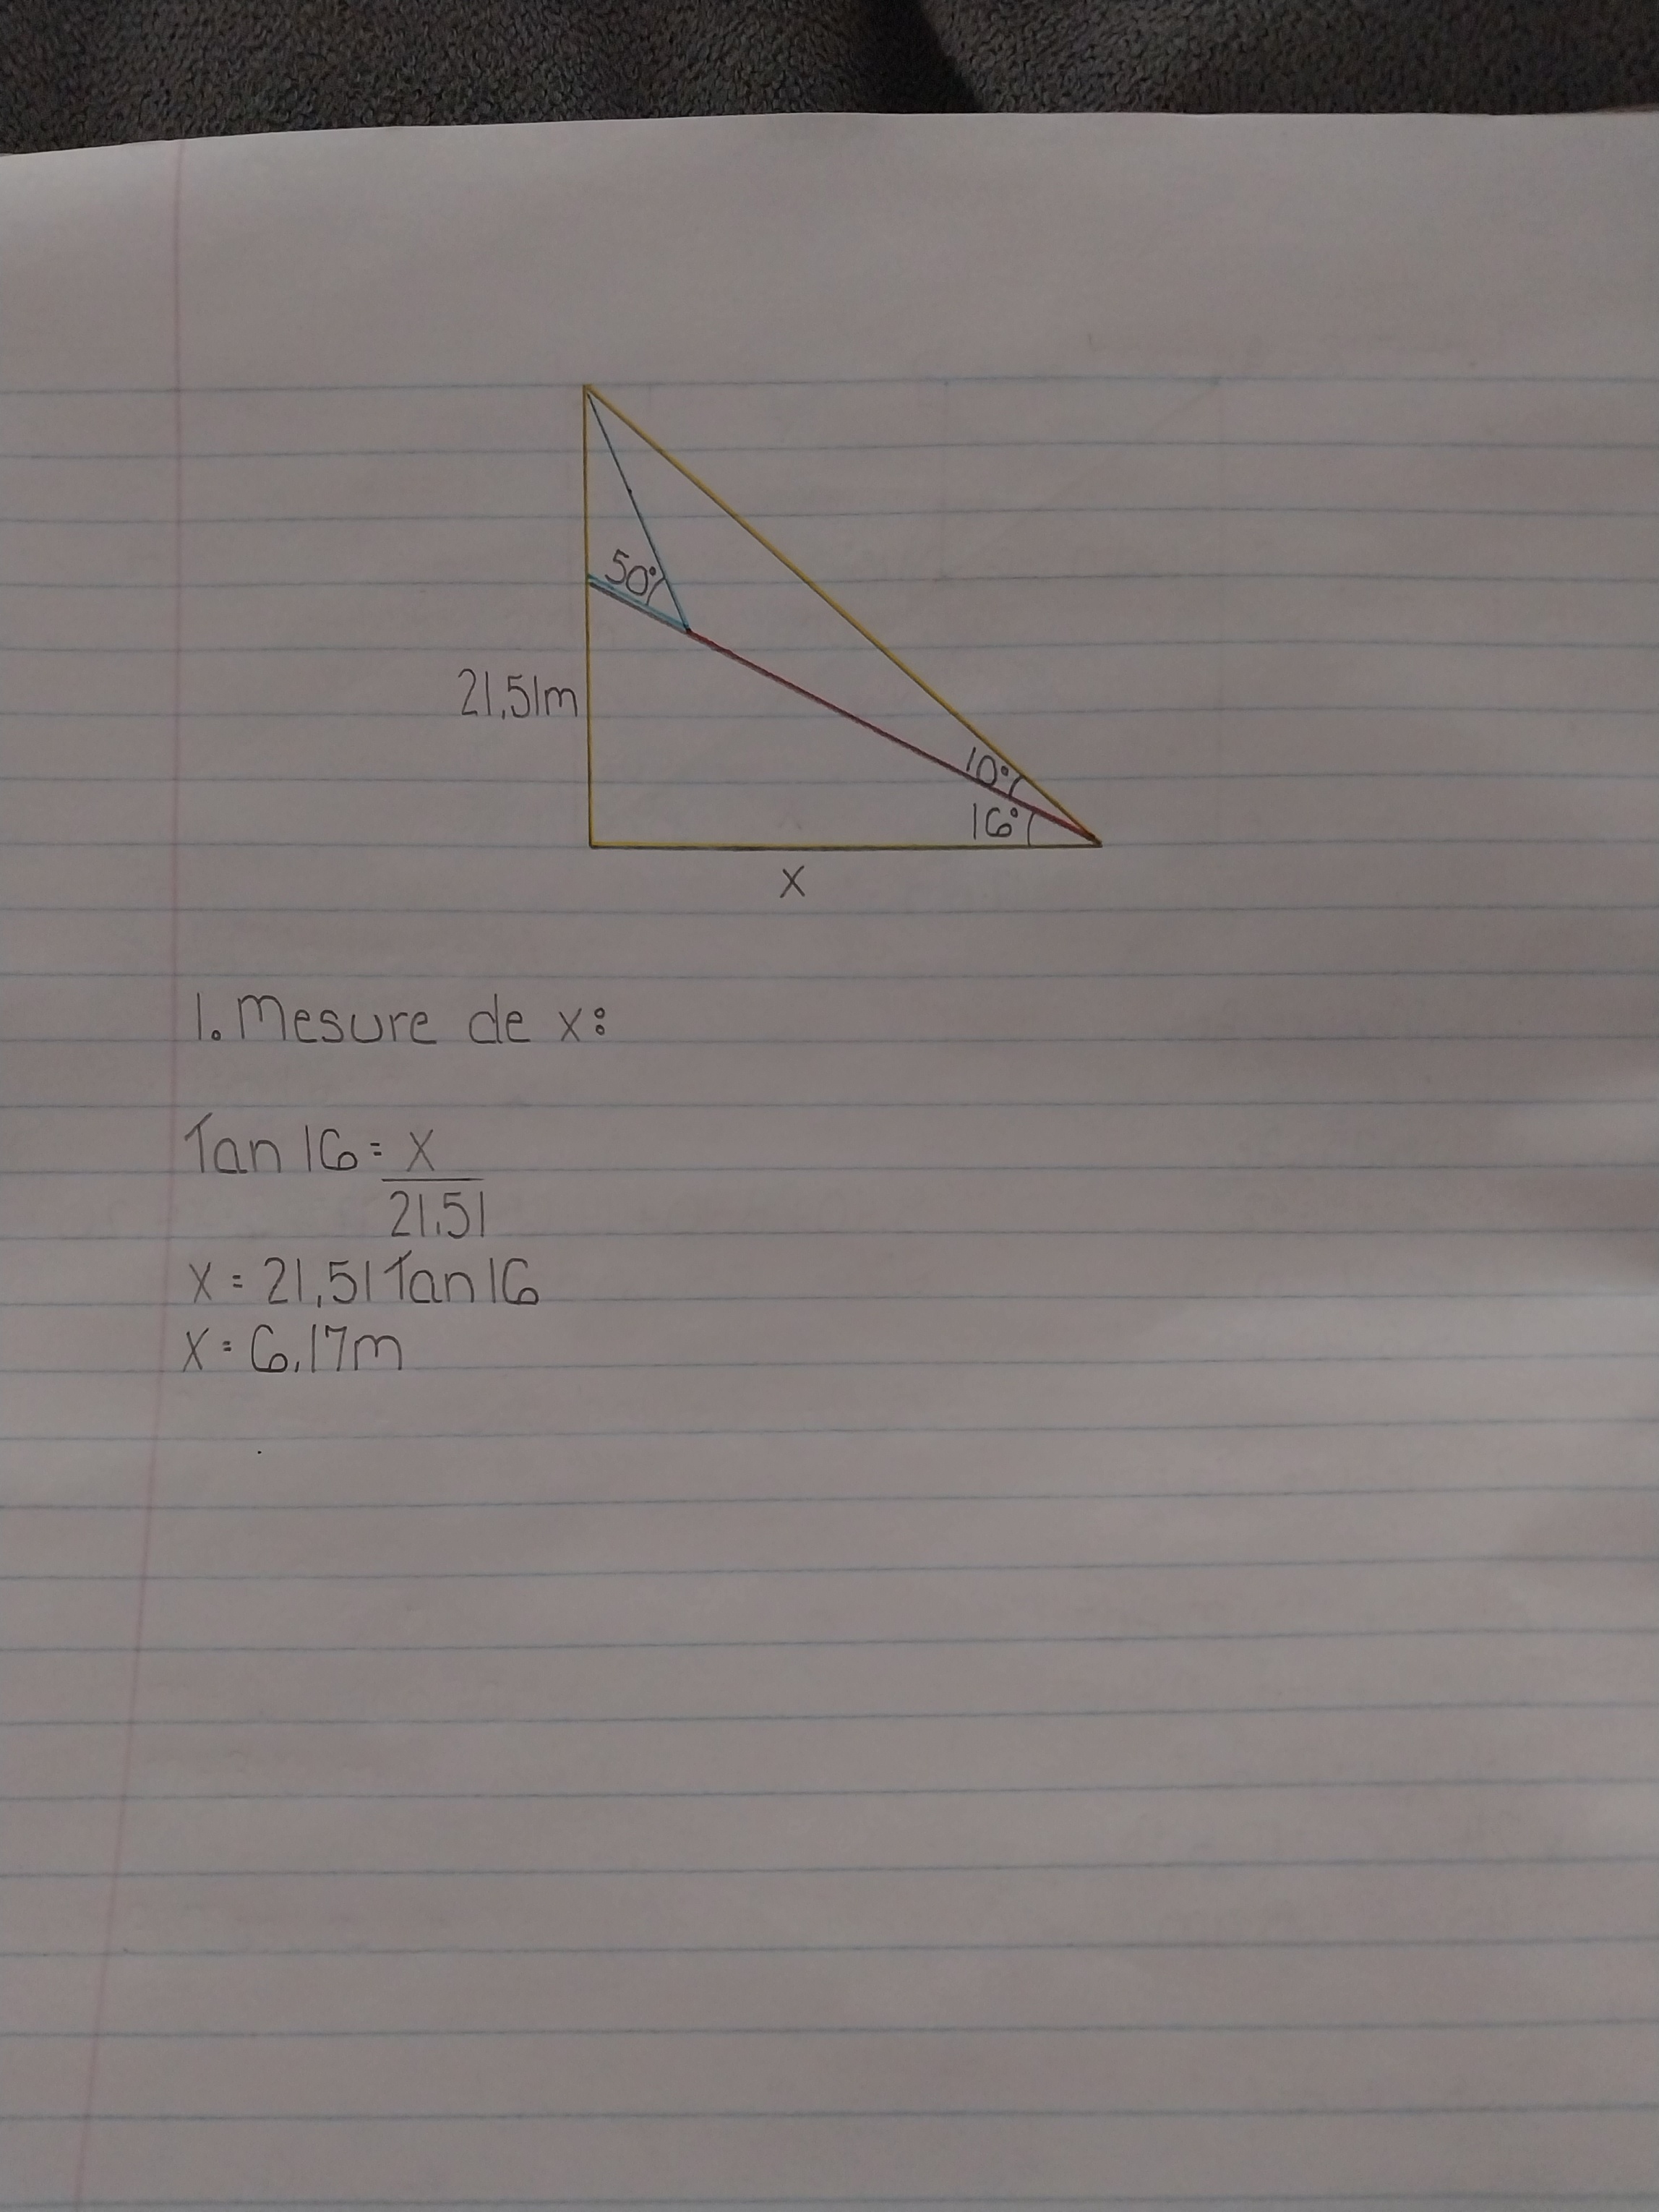 50°
21,51m
10°
16°
x
1. Mesure de x:
Tan 16 = x
21,51
x = 21,51 Tan 16
x = 6,17m